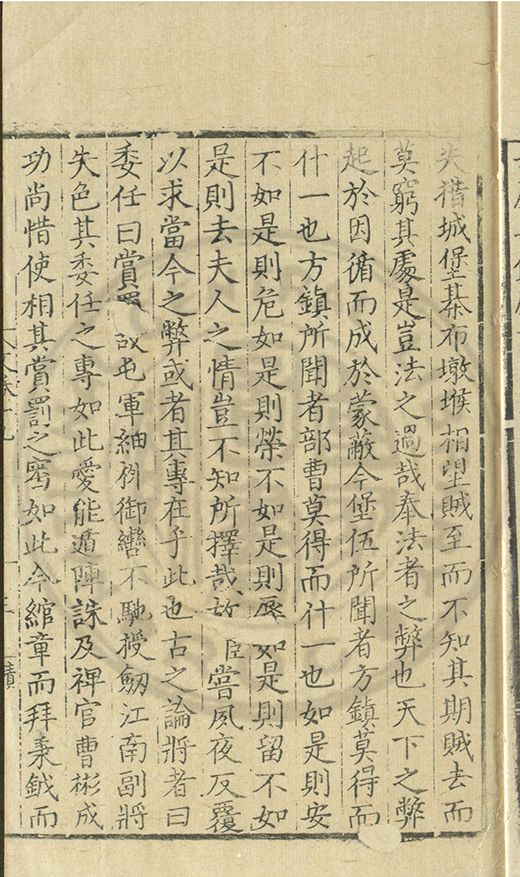 失猎城堡棊布墩堠相望賊至而不知其期賊去而
莫窮其處是豈法之過哉奉法者之弊也天下之弊
起於因循而成於蒙蔽今堡伍所聞者方鎮莫得而
什一也方鎮所聞者部曹莫得而什一也如是則安
不如是則危如是則榮不如是則辱如是則留不如
是則去夫人之情豈不知所擇哉故臣嘗夙夜反覆
以求當今之弊或者其專在乎此也古之論將者曰
委任曰賞罰 軍細 御轡不馳授劒江南副將
失色其委任之專如此愛能遁陣誅及裨官曹彬成
功尚惜使相其賞罰之宻如此今綰章而拜秉鉞而